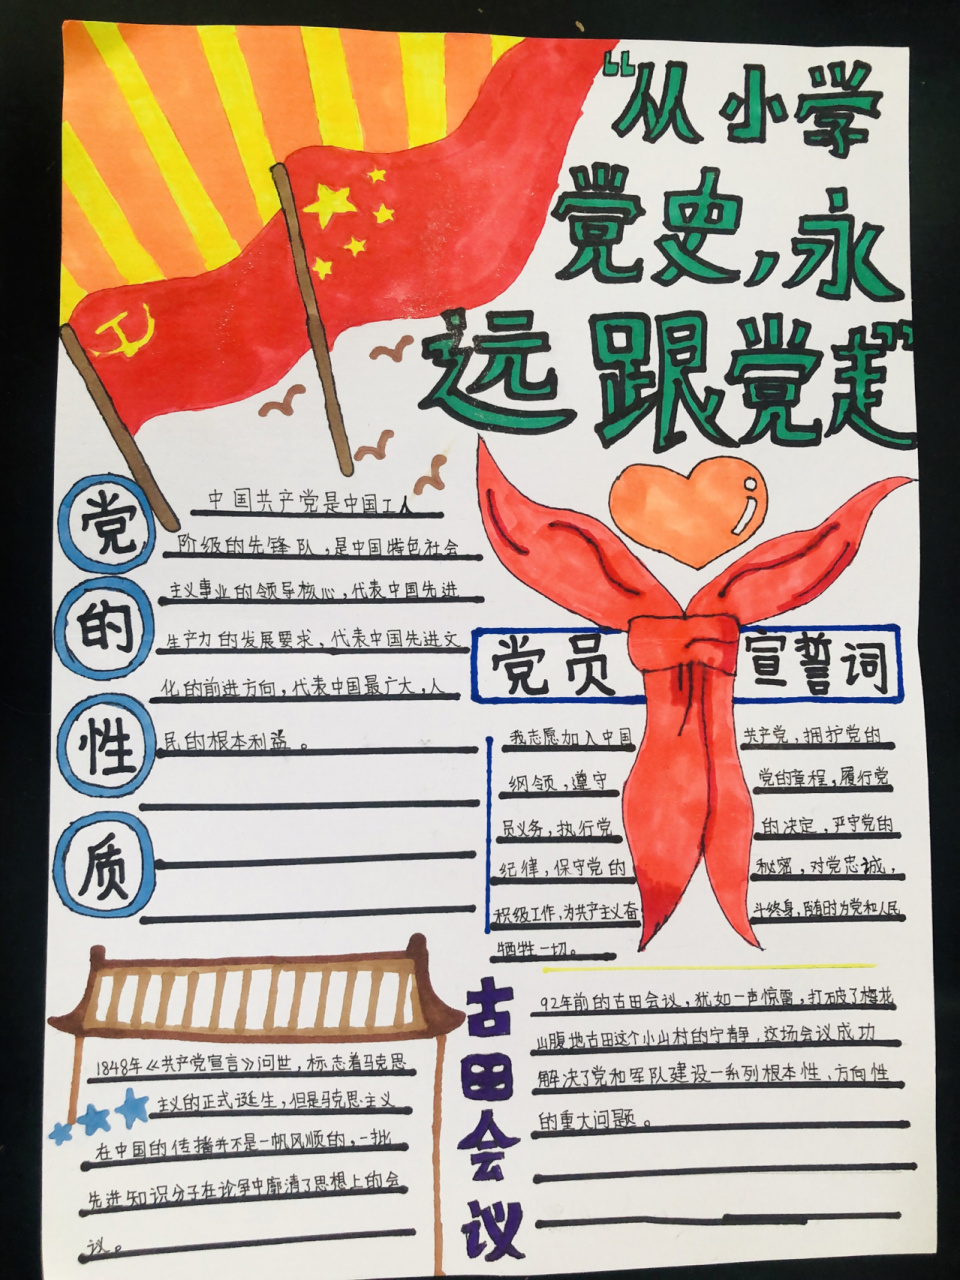 “从小学
党史，永
远跟党走”
党的性质
中国共产党是中国工人
阶级的先锋队，是中国特色社会
主义事业的领导核心，代表中国先进
生产力的发展要求，代表中国先进文
化的前进方向，代表中国最广大，人
民的根本利益。
党员宣誓词
我志愿加入中国共产党，拥护党的
纲领，遵守党的章程，履行党
员义务，执行党的决定，严守党的
纪律，保守党的秘密，对党忠诚，
积级工作，为共产主义奋斗终身，随时为党和人民
牺牲一切。
1848年《共产党宣言》问世，标志着马克思
主义的正式诞生，但是马克思主义
在中国的传播并不是一帆风顺的，一批
先进知识分子在论争中廓清了思想上的会
议。
古田会议
92年前的古田会议，犹如一声惊雷，打破了梅花
山腹地古田这个小山村的宁静，这场会议成功
解决了党和军队建设一系列根本性、方向性
的重大问题。